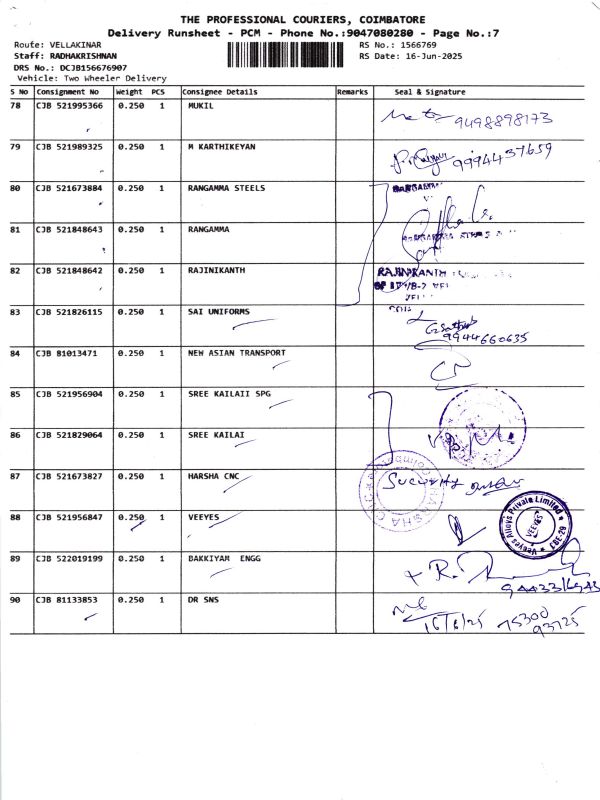 THE PROFESSIONAL COURIERS, COIMBATORE
Delivery Runsheet - PCM - Phone No.:9047080280 - Page No.:7
Route: VELLAKINAR RS No.: 1566769
Staff: RADHAKRISHNAN RS Date: 16-Jun-2025
DRS No.: DCJB156676907
Vehicle: Two Wheeler Delivery
S No Consignment No Weight PCS Consignee Details Remarks Seal & Signature
78 CJB 521995366 0.250 1 MUKIL 9498898173
79 CJB 521989325 0.250 1 M KARTHIKEYAN 9994437659
80 CJB 521673884 0.250 1 RANGAMMA STEELS
81 CJB 521848643 0.250 1 RANGAMMA
82 CJB 521848642 0.250 1 RAJINIKANTH RAJINIKANTH
83 CJB 521826115 0.250 1 SAI UNIFORMS
9944660635
84 CJB 81013471 0.250 1 NEW ASIAN TRANSPORT
85 CJB 521956904 0.250 1 SREE KAILAII SPG
86 CJB 521829064 0.250 1 SREE KAILAI
87 CJB 521673827 0.250 1 HARSHA CNC Security
88 CJB 521956847 0.250 1 VEEYES Veeyes Alloys Private Limited
VEEYES
89 CJB 522019199 0.250 1 BAKKIYAM ENGG
90 CJB 81133853 0.250 1 DR SNS
16/6/25 75300
93725